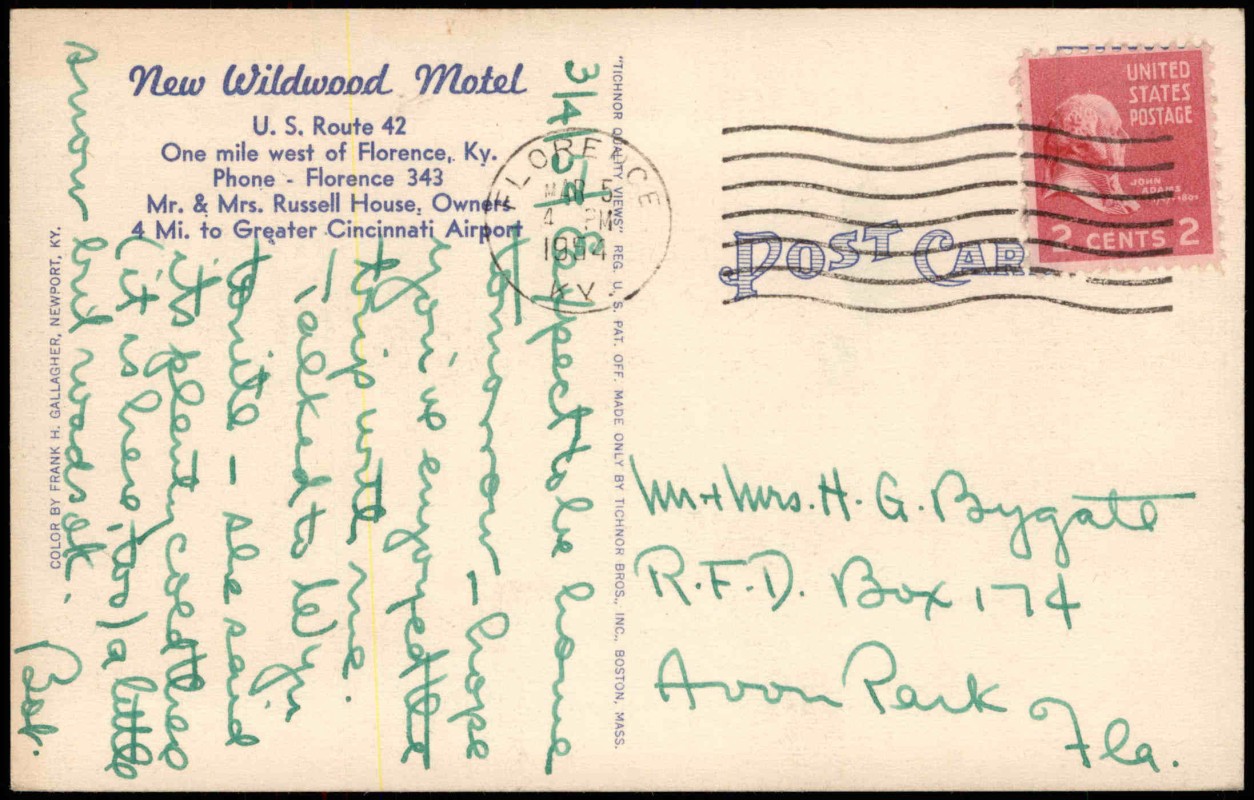 New Wildwood Motel
U. S. Route 42
One mile west of Florence, Ky.
Phone - Florence 343
Mr. & Mrs. Russell House, Owners
4 Mi. to Greater Cincinnati Airport
COLOR BY FRANK H. GALLAGHER, NEWPORT, KY.
"TICHNOR QUALITY VIEWS" REG. U. S. PAT. OFF. MADE ONLY BY TICHNOR BROS., INC., BOSTON, MASS.
FLORENCE
MAR 5
4 PM
1954
KY.
UNITED
STATES
POSTAGE
JOHN
ADAMS
2 CENTS 2
POST CAR
3/4/54 Expect to be home
tomorrow - hope
you've enjoyed the
trip with me.
Talked to
tonite - she said
it's plenty cold there
(it is here, too) a little
snow but roads ok.
Bob.
Mr + Mrs. H. G. Bygate
R.F.D. Box 174
Avon Park
Fla.